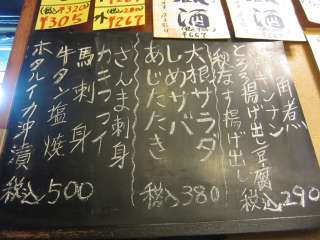 角煮
ギンナン
とろろ揚げ出し豆腐
秋なす揚げ出し
税込290
大根サラダ
しめサバ
あじたたき
税込380
さんま刺身
カキフライ
馬刺
牛タン塩焼
ホタルイカ沖漬
税込500
酒
¥667
¥320
¥305
¥267